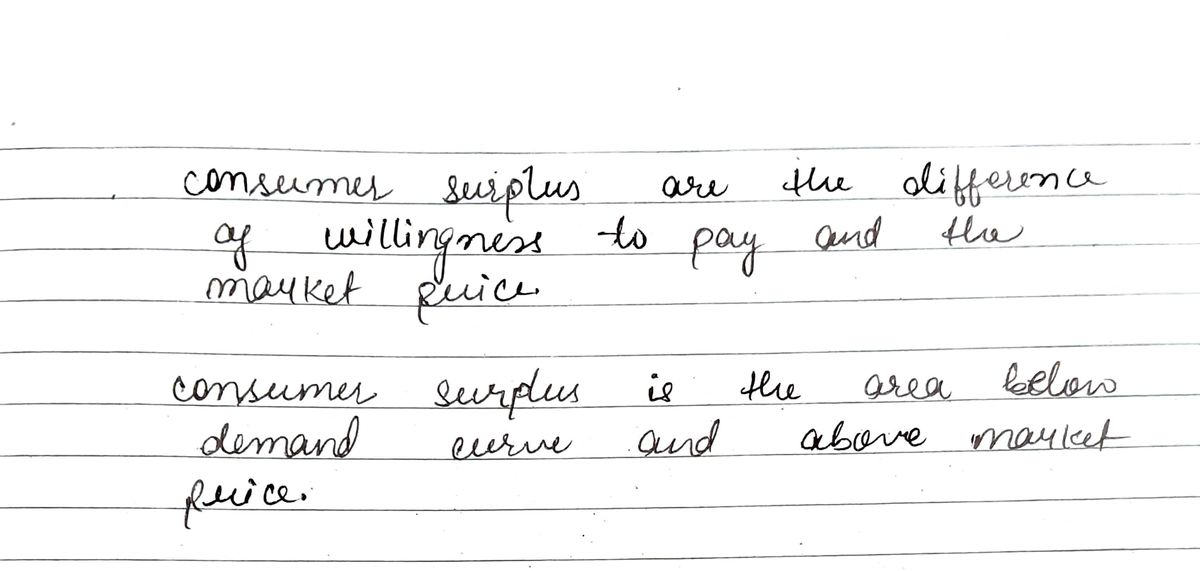 consumer surplus are the difference
of willingness to pay and the
market price
consumer surplus is the area below
demand curve and above market
price.